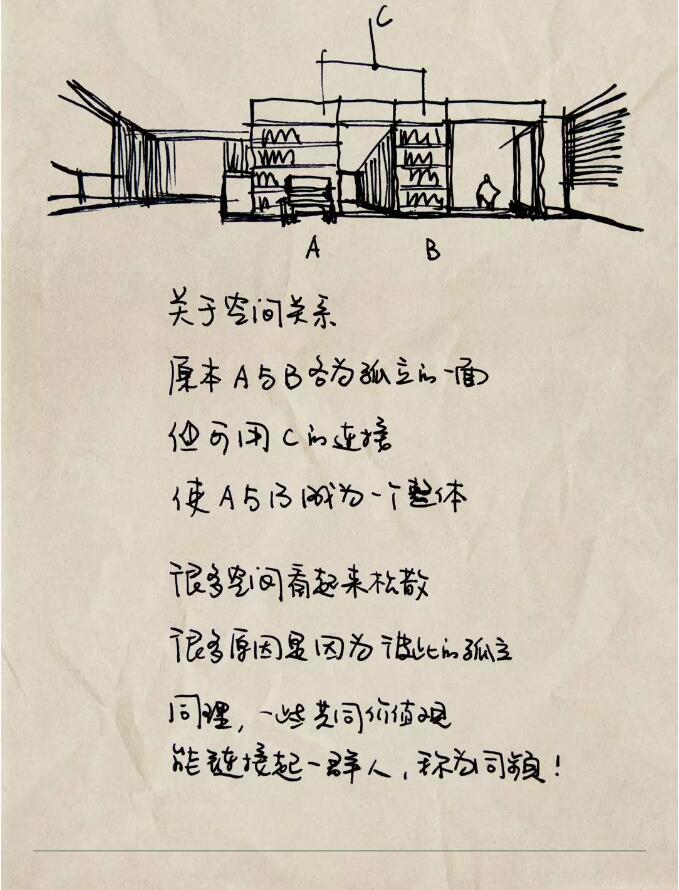 C
A B
关于空间关系
原本A与B各为孤立的一面
但可用C的连接
使A与B成为一个整体
很多空间看起来松散
很多原因是因为彼此的孤立
同理,一些共同价值观
能链接起一群人,称为同频!